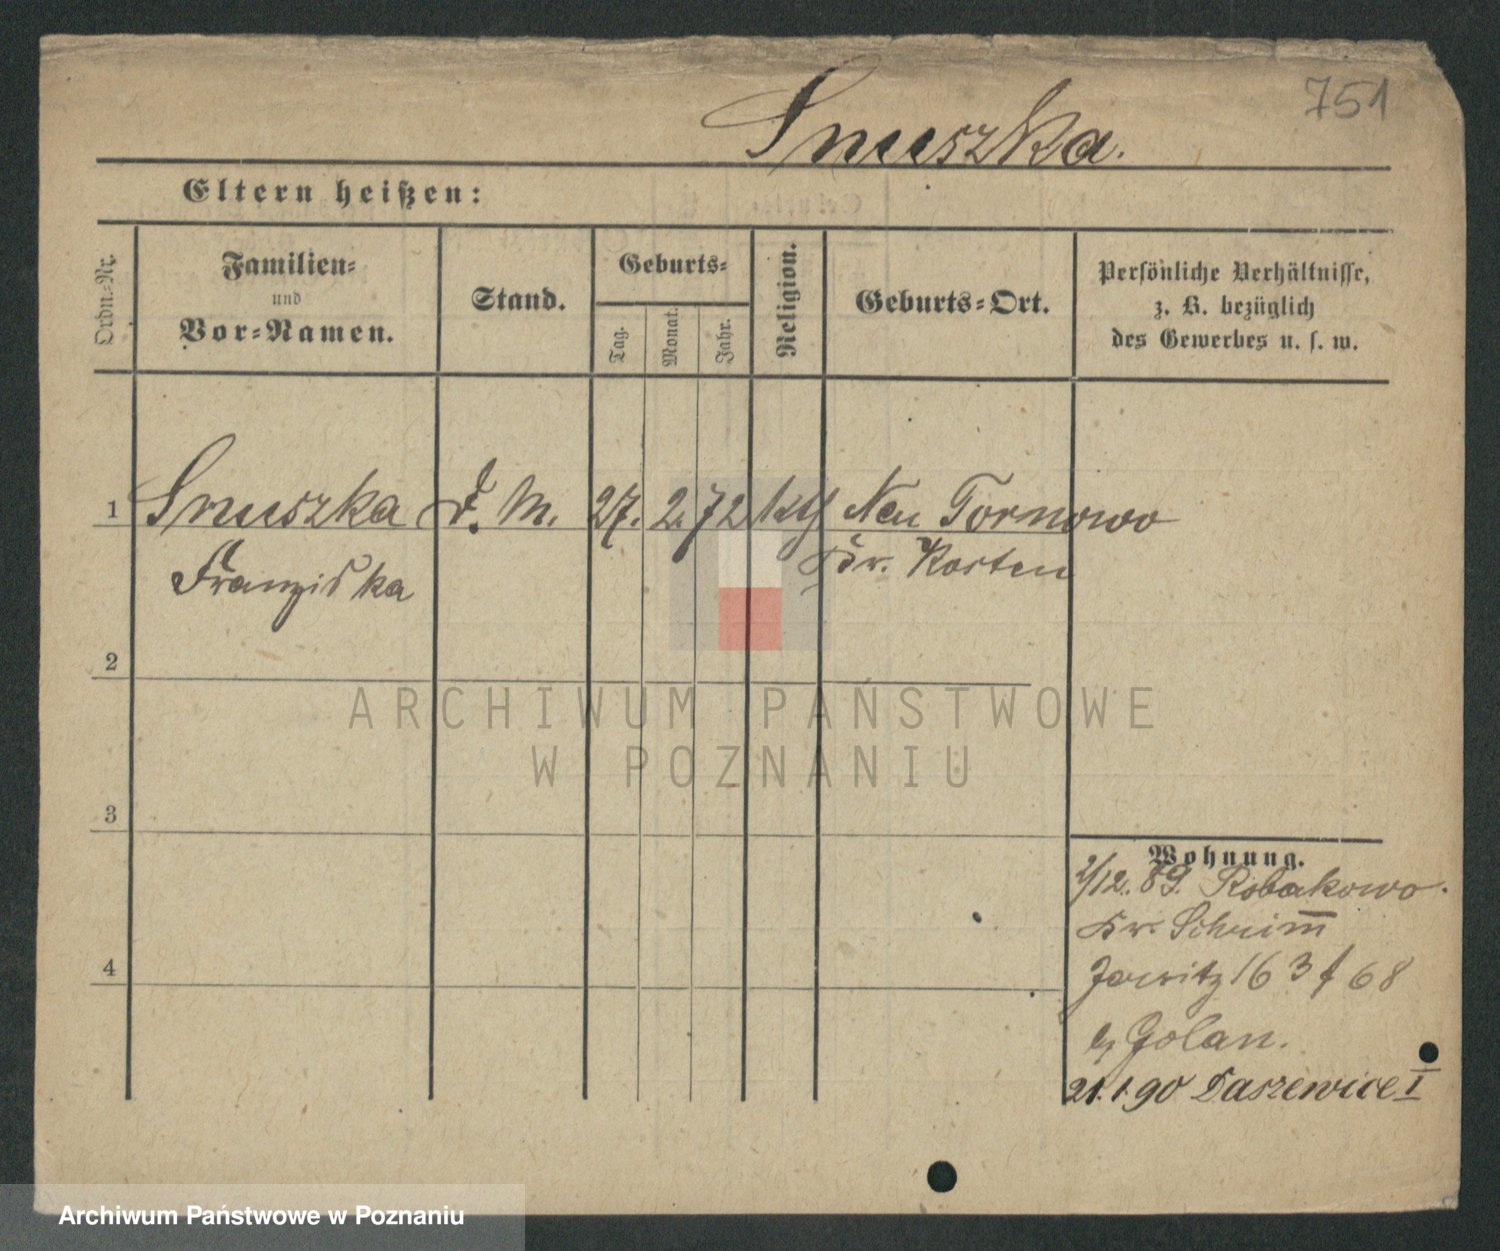 751
Smuszka.
Eltern heißen:
Ordn.-Nr.
Familien-
und
Vor-Namen.
Stand.
Geburts-
Tag.
Monat.
Jahr.
Religion.
Geburts-Ort.
Persönliche Verhältnisse,
z. B. bezüglich
des Gewerbes u. s. w.
1 Smuszka D. M. 27. 2. 72 kth Neu Tornowo
Franziska Kr. Kosten
2
3
4
Wohnung.
2/12. 89. Robakowo.
Kr. Schrimm
163 f 68
Golan.
21.1.90 Daszewice I
ARCHIWUM PAŃSTWOWE
W POZNANIU
Archiwum Państwowe w Poznaniu